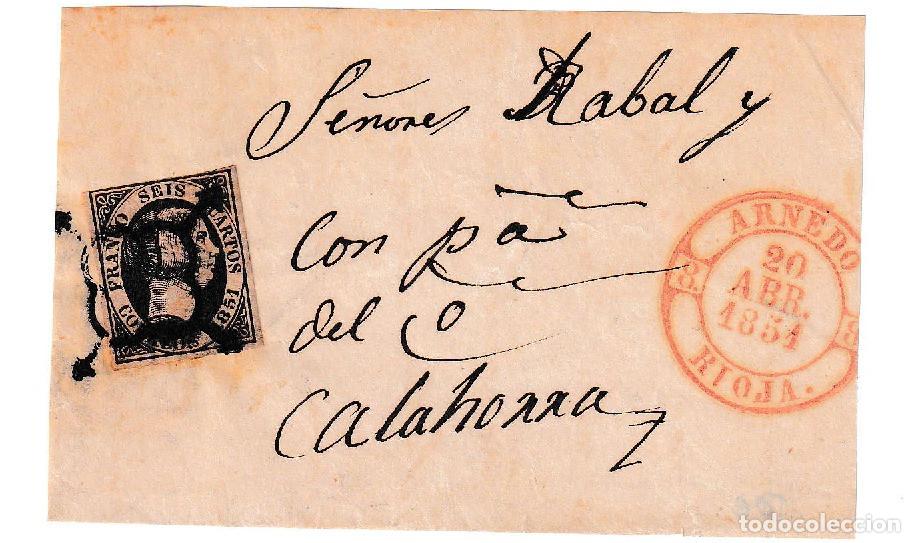 Señores Rabal y
Con pa̅
del C
Calahorra
FRANCO SEIS CUARTOS
CORREOS 1851
ARNEDO
20
ABR.
1851
RIOJA.
todocoleccion